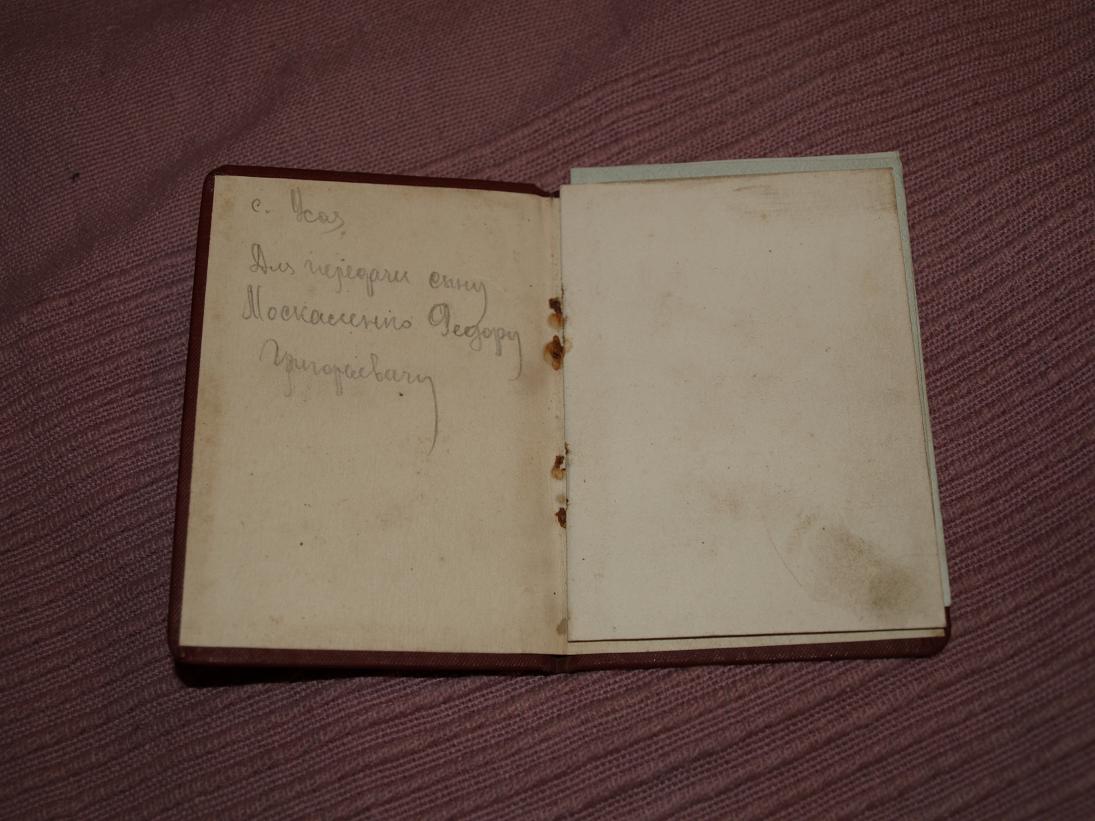 с.
Для передачи сыну
Москаленко Федору
Григорьевичу